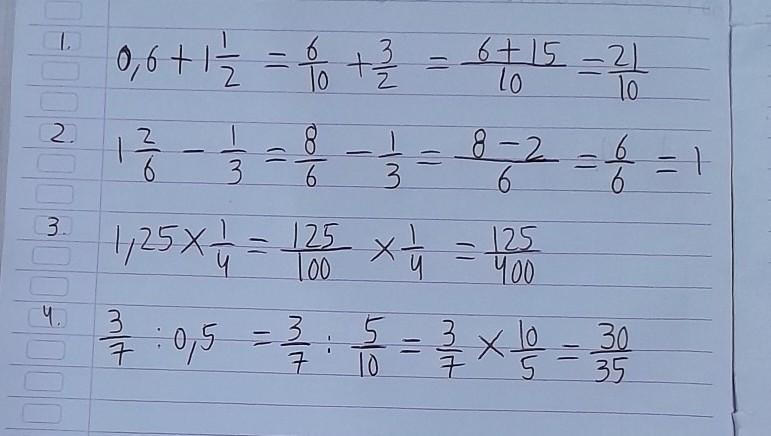 1. 0,6 + 1 1/2 = 6/10 + 3/2 = (6 + 15)/10 = 21/10
2. 1 2/6 - 1/3 = 8/6 - 1/3 = (8 - 2)/6 = 6/6 = 1
3. 1,25 × 1/4 = 125/100 × 1/4 = 125/400
4. 3/7 : 0,5 = 3/7 : 5/10 = 3/7 × 10/5 = 30/35